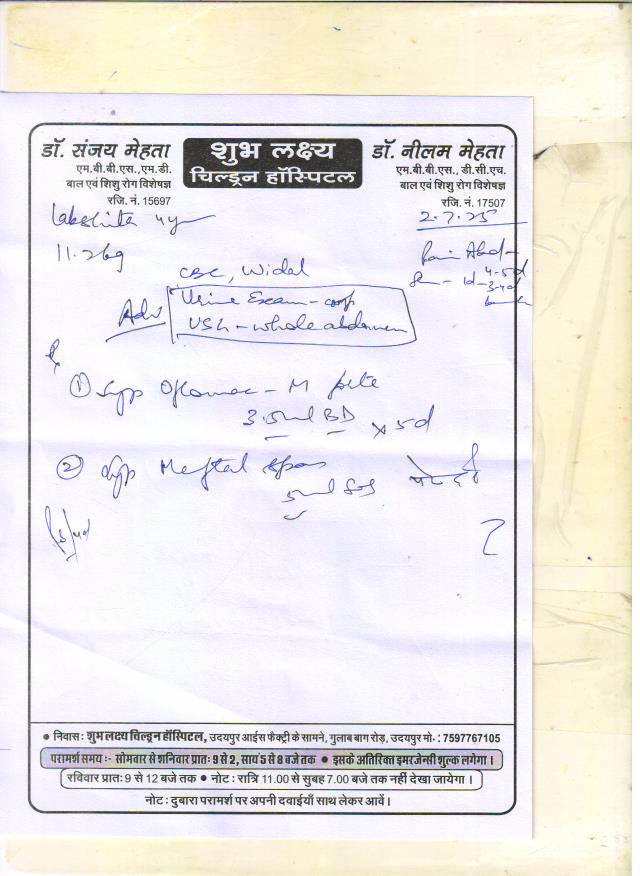 डॉ. संजय मेहता
एम.बी.बी.एस., एम.डी.
बाल एवं शिशु रोग विशेषज्ञ
रजि. नं. 15697
शुभ लक्ष्य
चिल्ड्रन हॉस्पिटल
डॉ. नीलम मेहता
एम.बी.बी.एस., डी.सी.एच.
बाल एवं शिशु रोग विशेषज्ञ
रजि. नं. 17507
Lakshita 4yr
2.7.25
11.2kg
Pain Abd -
4-5d
1d - 3-4d
CBC, Widal
Adv
Urine Exam - comp
USG - whole abdomen
① Syp Oflomac - M forte
3.5ml BD x 5d
② Syp Meftal Spas
5ml SOS पेट दर्द
• निवास : शुभ लक्ष्य चिल्ड्रन हॉस्पिटल, उदयपुर आईस फैक्ट्री के सामने, गुलाब बाग रोड़, उदयपुर मो. : 7597767105
परामर्श समय :- सोमवार से शनिवार प्रातः 9 से 2, सायं 5 से 8 बजे तक • इसके अतिरिक्त इमरजेन्सी शुल्क लगेगा ।
रविवार प्रातः 9 से 12 बजे तक • नोट : रात्रि 11.00 से सुबह 7.00 बजे तक नहीं देखा जायेगा ।
नोट : दुबारा परामर्श पर अपनी दवाईयाँ साथ लेकर आवें ।